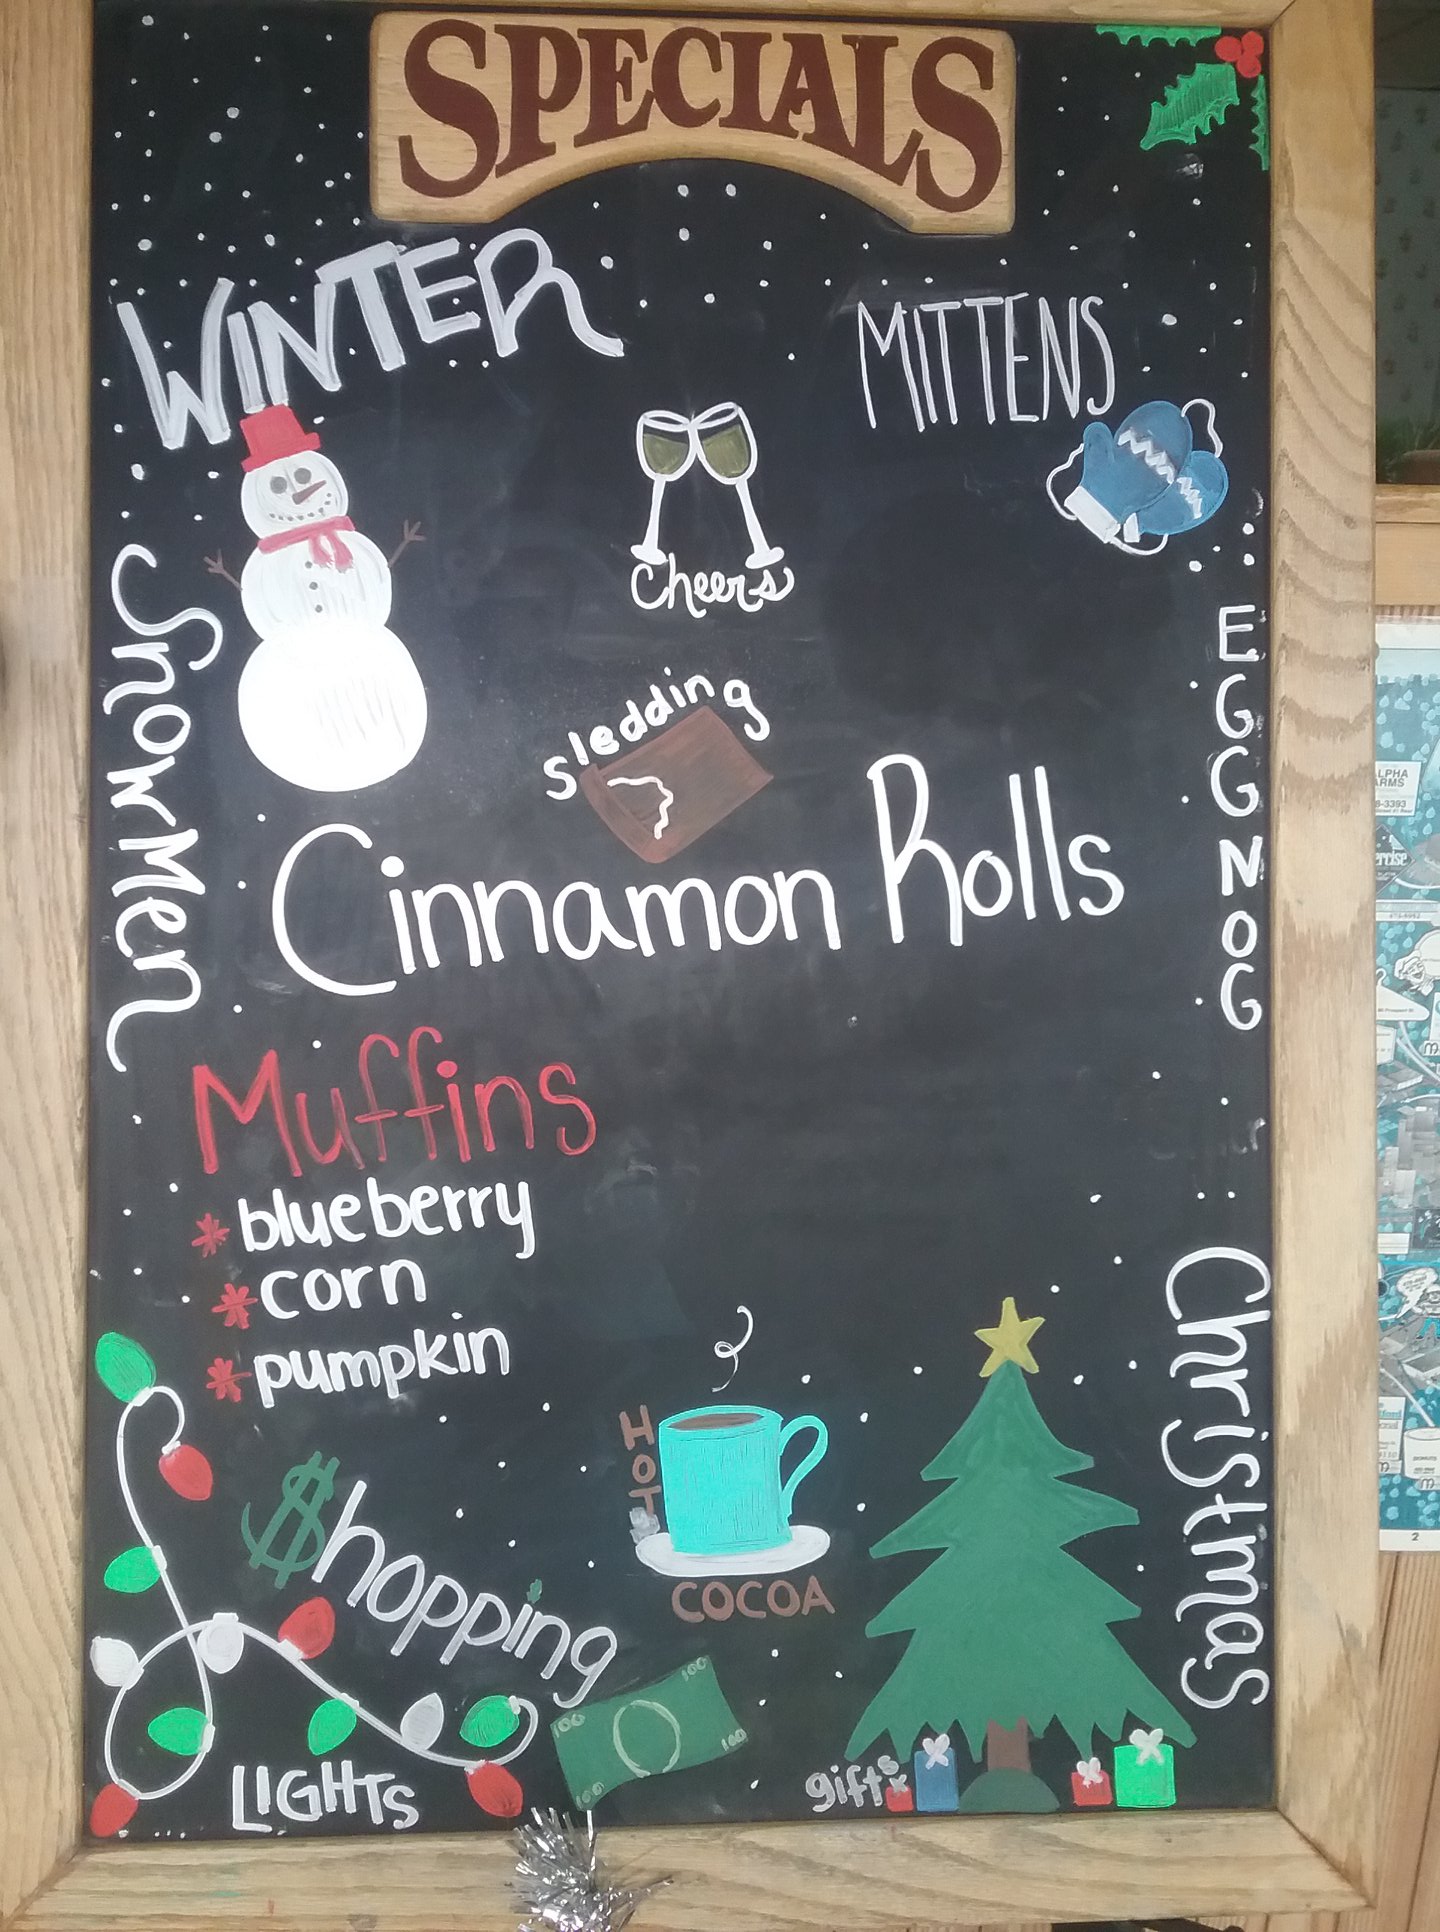 SPECIALS
WINTER
MITTENS
Cheers
SnowMen
sledding
EGGNOG
Cinnamon Rolls
Muffins
* blueberry
* corn
* pumpkin
HOT
COCOA
Christmas
$hopping
100
100
100
100
LIGHTS
gifts
2